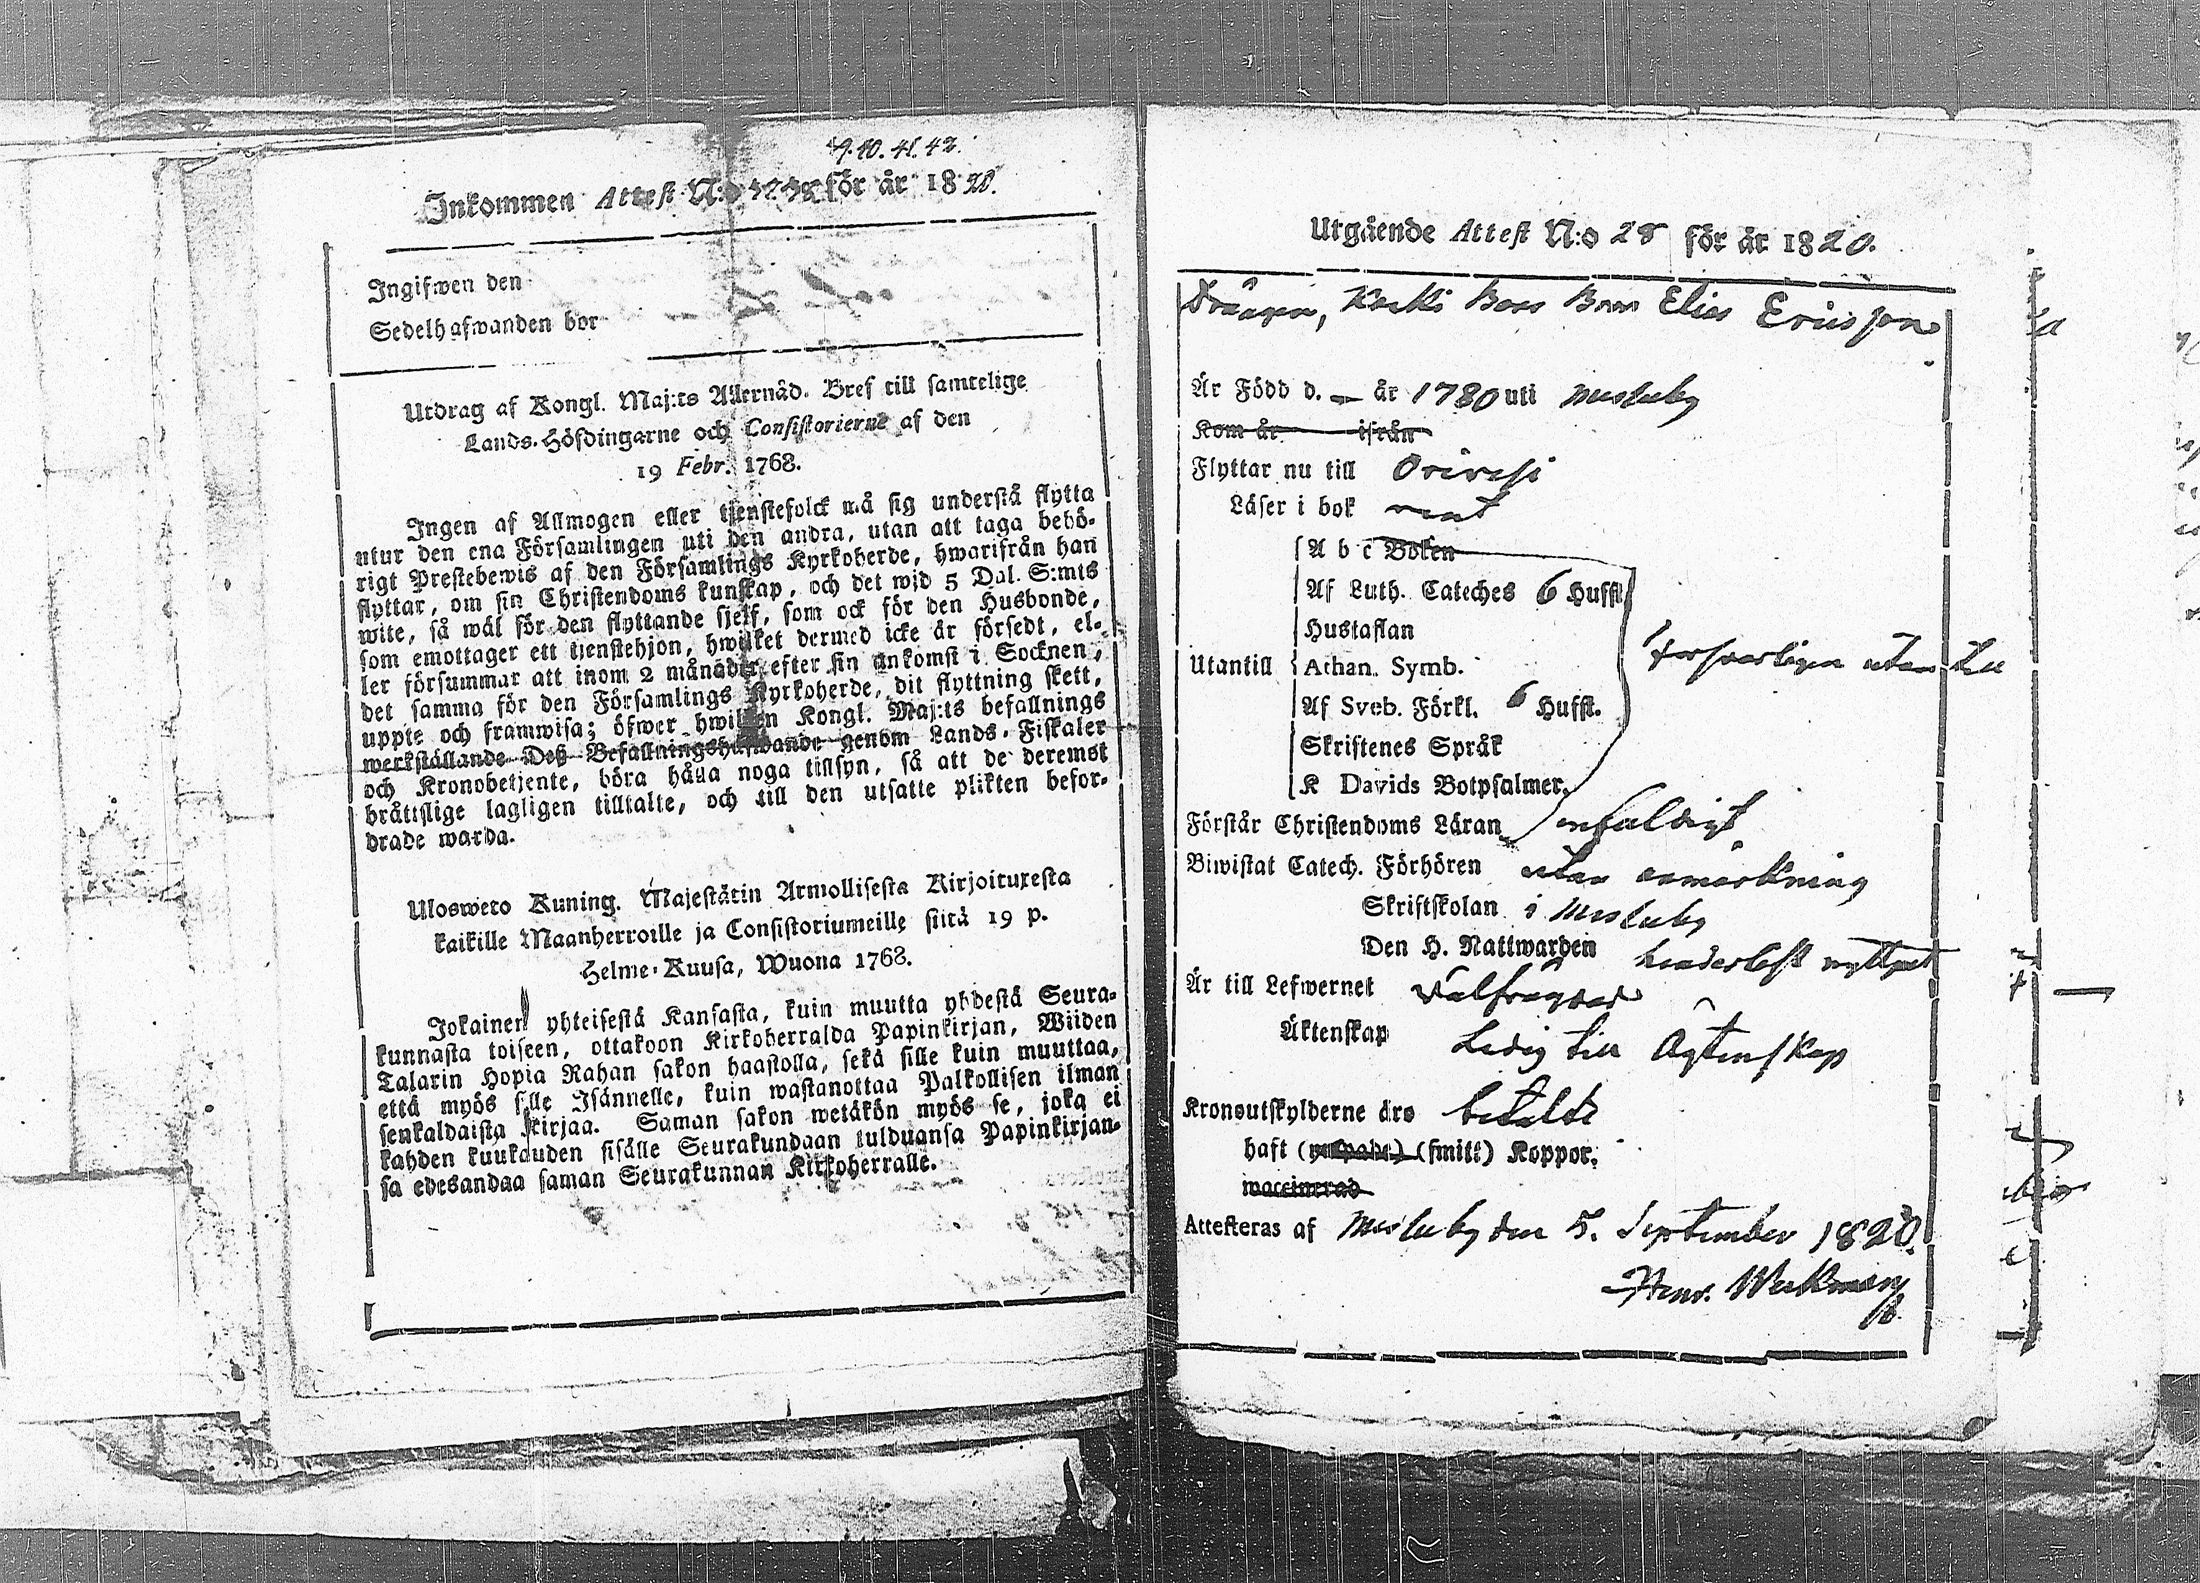 39. 40. 41. 42.
Inkommen Attest N:o för år 1820.
Ingifwen den
Sedelhafwanden bor
Utdrag af Kongl. Maj:ts Allernåd. Bref till samtelige
Lands-Höfdingarne och Consistorierne af den
19 Febr. 1768.
Ingen af Allmogen eller tjenstefolck må sig understå flytta
utur den ena Församlingen uti den andra, utan att taga behö-
rigt Prestebewis af den Församlings Kyrkoherde, hwarifrån han
flyttar, om sin Christendoms kunskap, och det wid 5 Dal. S:mts
wite, så wäl för den flyttande sjelf, som ock för den Husbonde,
som emottager ett tjenstehjon, hwilket dermed icke är försedt, el-
ler försummar att inom 2 månader efter sin ankomst i Socknen,
det samma för den Församlings Kyrkoherde, dit flyttning skett,
uppte och framwisa; öfwer hwilken Kongl. Maj:ts befallnings
werkställande Deß Befallningshafwande genom Lands-Fiskaler
och Kronobetjente, böra hålla noga tillsyn, så att de deremot
bråttslige lagligen tilltalte, och till den utsatte plikten befor-
drade warda.
Ulosweto Kuning. Majestätin Armollisesta Kirjoituxesta
kaikille Maanherroille ja Consistoriumeille siitä 19 p.
Helme-Kuusa, Wuona 1768.
Jokainen yhteisestä Kansasta, kuin muutta yhdestä Seura-
kunnasta toiseen, ottakoon Kirkoherralda Papinkirjan, Wiiden
Talarin Hopia Rahan sakon haastolla, sekä sille kuin muuttaa,
että myös sille Isännelle, kuin wastanottaa Palkollisen ilman
senkaldaista kirjaa. Saman sakon wetäkön myös se, joka ei
kahden kuukauden sisälle Seurakundaan tulduansa Papinkirjan-
sa edesandaa saman Seurakunnan Kirkoherralle.
Utgående Attest N:o 28 för år 1820.
Drängen, Elias Ericsson
Är Född d. — år 1780 uti Messuby
Kom år ifrån
Flyttar nu till Orivesi
Läser i bok rent
A b c Boken
Af Luth. Cateches 6 Huffst.
Hustaflan
Utantill Athan. Symb. försvarligen utan
Af Sveb. Förkl. 6 Huffst.
Skriftenes Språk
K Davids Botpsalmer.
Förstår Christendoms Läran enfaldigt
Biwistat Catech. Förhören utan anmärkning
Skriftskolan i Messuby
Den H. Nattwarden hinderlöst nyttjat
Är till Lefwernet välfrägdad
Äktenskap Ledig till Ägtenskap
Kronoutskylderne äro betalde
haft (smitt) Koppor.
waccinerad
Attesteras af Messuby den 5. September 1820.
Henr. Weckman